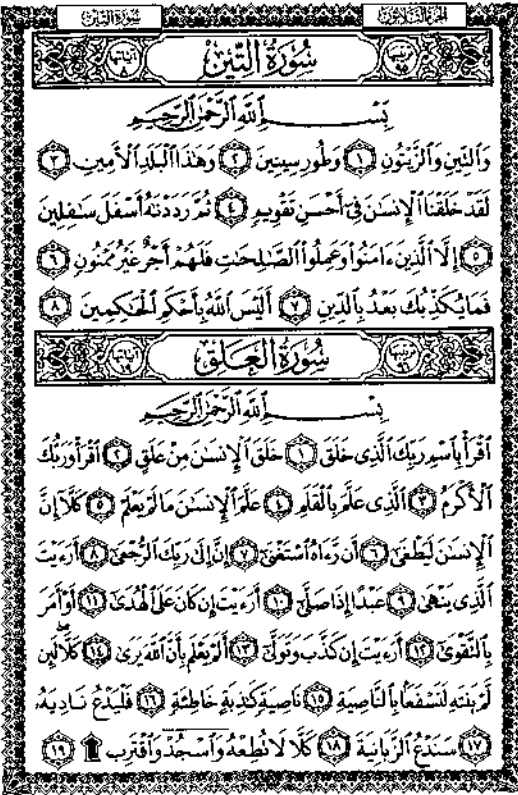 سُورَةُ التِّينِ
الجُزْءُ الثَّلَاثُونَ
ترتيبها ٩٥ سُورَةُ التِّينِ آياتها ٨
بِسْمِ ٱللَّهِ ٱلرَّحْمَٰنِ ٱلرَّحِيمِ
وَٱلتِّينِ وَٱلزَّيْتُونِ ١ وَطُورِ سِينِينَ ٢ وَهَٰذَا ٱلْبَلَدِ ٱلْأَمِينِ ٣
لَقَدْ خَلَقْنَا ٱلْإِنسَٰنَ فِىٓ أَحْسَنِ تَقْوِيمٍ ٤ ثُمَّ رَدَدْنَٰهُ أَسْفَلَ سَٰفِلِينَ
٥ إِلَّا ٱلَّذِينَ ءَامَنُوا۟ وَعَمِلُوا۟ ٱلصَّٰلِحَٰتِ فَلَهُمْ أَجْرٌ غَيْرُ مَمْنُونٍ ٦
فَمَا يُكَذِّبُكَ بَعْدُ بِٱلدِّينِ ٧ أَلَيْسَ ٱللَّهُ بِأَحْكَمِ ٱلْحَٰكِمِينَ ٨
ترتيبها ٩٦ سُورَةُ العَلَقِ آياتها ١٩
بِسْمِ ٱللَّهِ ٱلرَّحْمَٰنِ ٱلرَّحِيمِ
ٱقْرَأْ بِٱسْمِ رَبِّكَ ٱلَّذِى خَلَقَ ١ خَلَقَ ٱلْإِنسَٰنَ مِنْ عَلَقٍ ٢ ٱقْرَأْ وَرَبُّكَ
ٱلْأَكْرَمُ ٣ ٱلَّذِى عَلَّمَ بِٱلْقَلَمِ ٤ عَلَّمَ ٱلْإِنسَٰنَ مَا لَمْ يَعْلَمْ ٥ كَلَّآ إِنَّ
ٱلْإِنسَٰنَ لَيَطْغَىٰٓ ٦ أَن رَّءَاهُ ٱسْتَغْنَىٰٓ ٧ إِنَّ إِلَىٰ رَبِّكَ ٱلرُّجْعَىٰٓ ٨ أَرَءَيْتَ
ٱلَّذِى يَنْهَىٰ ٩ عَبْدًا إِذَا صَلَّىٰٓ ١٠ أَرَءَيْتَ إِن كَانَ عَلَى ٱلْهُدَىٰٓ ١١ أَوْ أَمَرَ
بِٱلتَّقْوَىٰٓ ١٢ أَرَءَيْتَ إِن كَذَّبَ وَتَوَلَّىٰٓ ١٣ أَلَمْ يَعْلَم بِأَنَّ ٱللَّهَ يَرَىٰ ١٤ كَلَّا لَئِن
لَّمْ يَنتَهِ لَنَسْفَعًۢا بِٱلنَّاصِيَةِ ١٥ نَاصِيَةٍ كَٰذِبَةٍ خَاطِئَةٍ ١٦ فَلْيَدْعُ نَادِيَهُۥ
١٧ سَنَدْعُ ٱلزَّبَانِيَةَ ١٨ كَلَّا لَا تُطِعْهُ وَٱسْجُدْ وَٱقْتَرِب ۩ ١٩